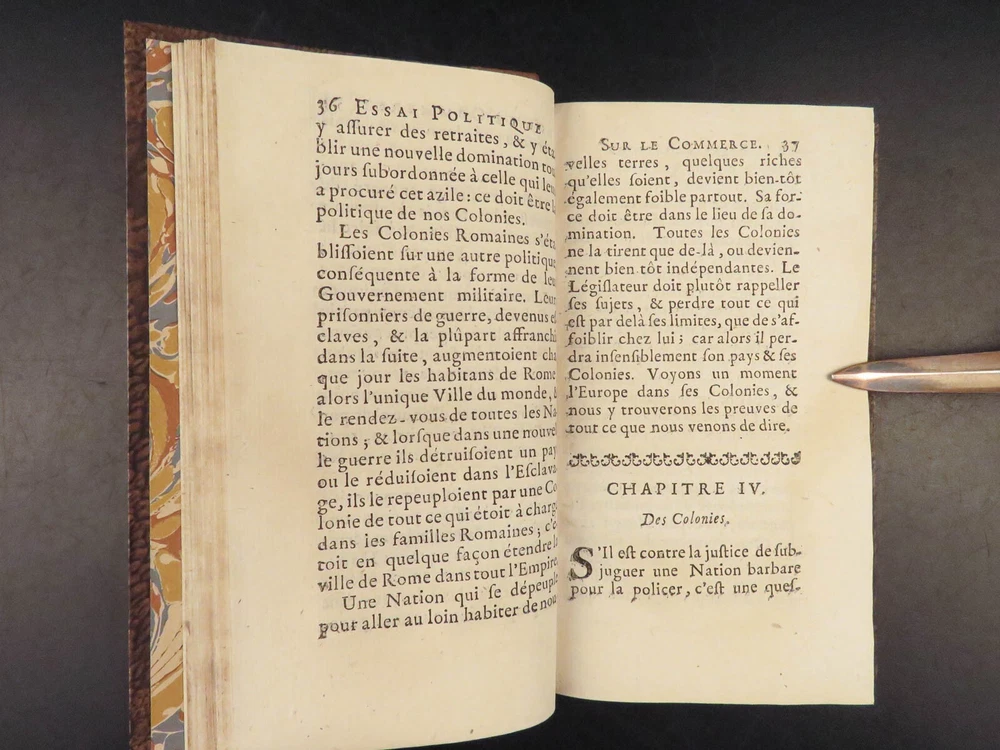 36 ESSAI POLITIQUE
y assurer des retraites, & y éta
blir une nouvelle domination tou
jours subordonnée à celle qui leu
a procuré cet azile : ce doit être l
politique de nos Colonies.
Les Colonies Romaines s'éta
blissoient sur une autre politique
conséquente à la forme de leu
Gouvernement militaire. Leur
prisonniers de guerre, devenus es
claves, & la plûpart affranchi
dans la suite, augmentoient cha
que jour les habitans de Rome
alors l'unique Ville du monde,
le rendez-vous de toutes les Na
tions ; & lorsque dans une nouvel
le guerre ils détruisoient un pay
ou le réduisoient dans l'Esclava
ge, ils le repeuploient par une Co
lonie de tout ce qui étoit à charge
dans les familles Romaines ; c'é
toit en quelque façon étendre l
ville de Rome dans tout l'Empire
Une Nation qui se dépeuple
pour aller au loin habiter de nou
SUR LE COMMERCE. 37
velles terres, quelques riches
qu'elles soient, devient bien-tôt
également foible partout. Sa for-
ce doit être dans le lieu de sa do-
mination. Toutes les Colonies
ne la tirent que de-là, ou devien-
nent bien tôt indépendantes. Le
Législateur doit plutôt rappeller
ses sujets, & perdre tout ce qui
est par delà ses limites, que de s'af-
foiblir chez lui ; car alors il per-
dra insensiblement son pays & ses
Colonies. Voyons un moment
l'Europe dans ses Colonies, &
nous y trouverons les preuves de
tout ce que nous venons de dire.
CHAPITRE IV.
Des Colonies.
S'Il est contre la justice de sub-
juguer une Nation barbare
pour la policer, c'est une ques-